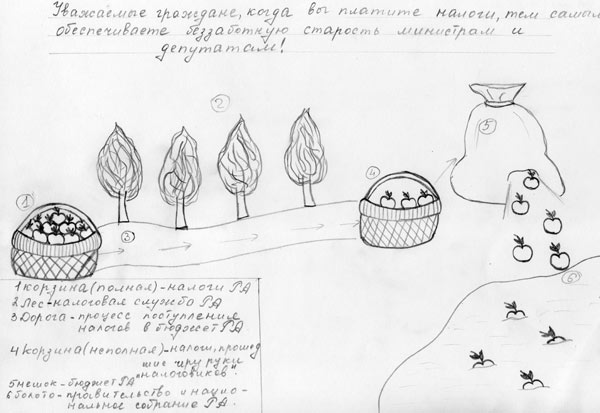 Уважаемые граждане, когда вы платите налоги, тем самым
обеспечиваете беззаботную старость министрам и
депутатам!
2
5
4
1
3
6
1 корзина (полная) - налоги РА
2 Лес - налоговая служба РА
3 Дорога - процесс поступления
налогов в бюджет РА
4 корзина (неполная) - налоги, прошед
шие чрз руки
"налоговиков".
5 мешок - бюджет РА
6 болото - правительство и нацио-
нальное собрание РА.